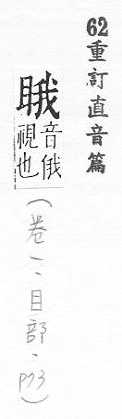 62重訂直音篇
䀝音俄
視也
(卷一、目部、P73)